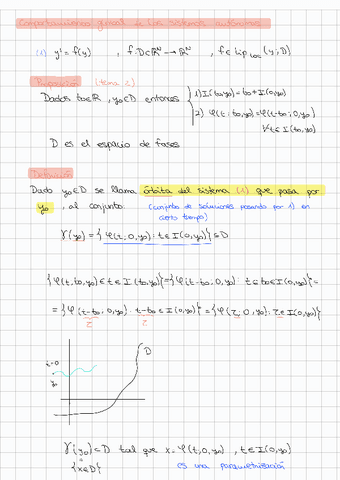 Comportamiento global de los sistemas autónomos
(1) y' = f(y) , f: D⊂ℝᴺ → ℝᴺ , f ∈ Lip loc (y; D)
Proposición (tema 2)
Dados t₀∈ℝ, y₀∈D entonces { 1) I(t₀,y₀) = t₀ + I(0,y₀)
2) φ(t; t₀,y₀) = φ(t-t₀; 0,y₀)
∀t ∈ I(t₀,y₀)
D es el espacio de fases
Definición
Dado y₀∈D se llama órbita del sistema (1) que pasa por
y₀, al conjunto: (conjunto de soluciones pasando por 1) en
cierto tiempo)
γ(y₀) = {φ(t, 0,y₀) : t∈I(0,y₀)} ⊂ D
{φ(t,t₀,y₀) : t ∈ I(t₀,y₀)} = {φ(t-t₀, 0,y₀) : t ∈ t₀ + I(0,y₀)} =
= {φ(t-t₀, 0,y₀) : t-t₀ ∈ I(0,y₀)} = {φ(τ, 0,y₀) : τ ∈ I(0,y₀)}
τ τ
t=0
D
y₀
γ(y₀) ⊂ D tal que x = φ(t,0,y₀) , t ∈ I(0,y₀)
{x∈D} es una parametrización